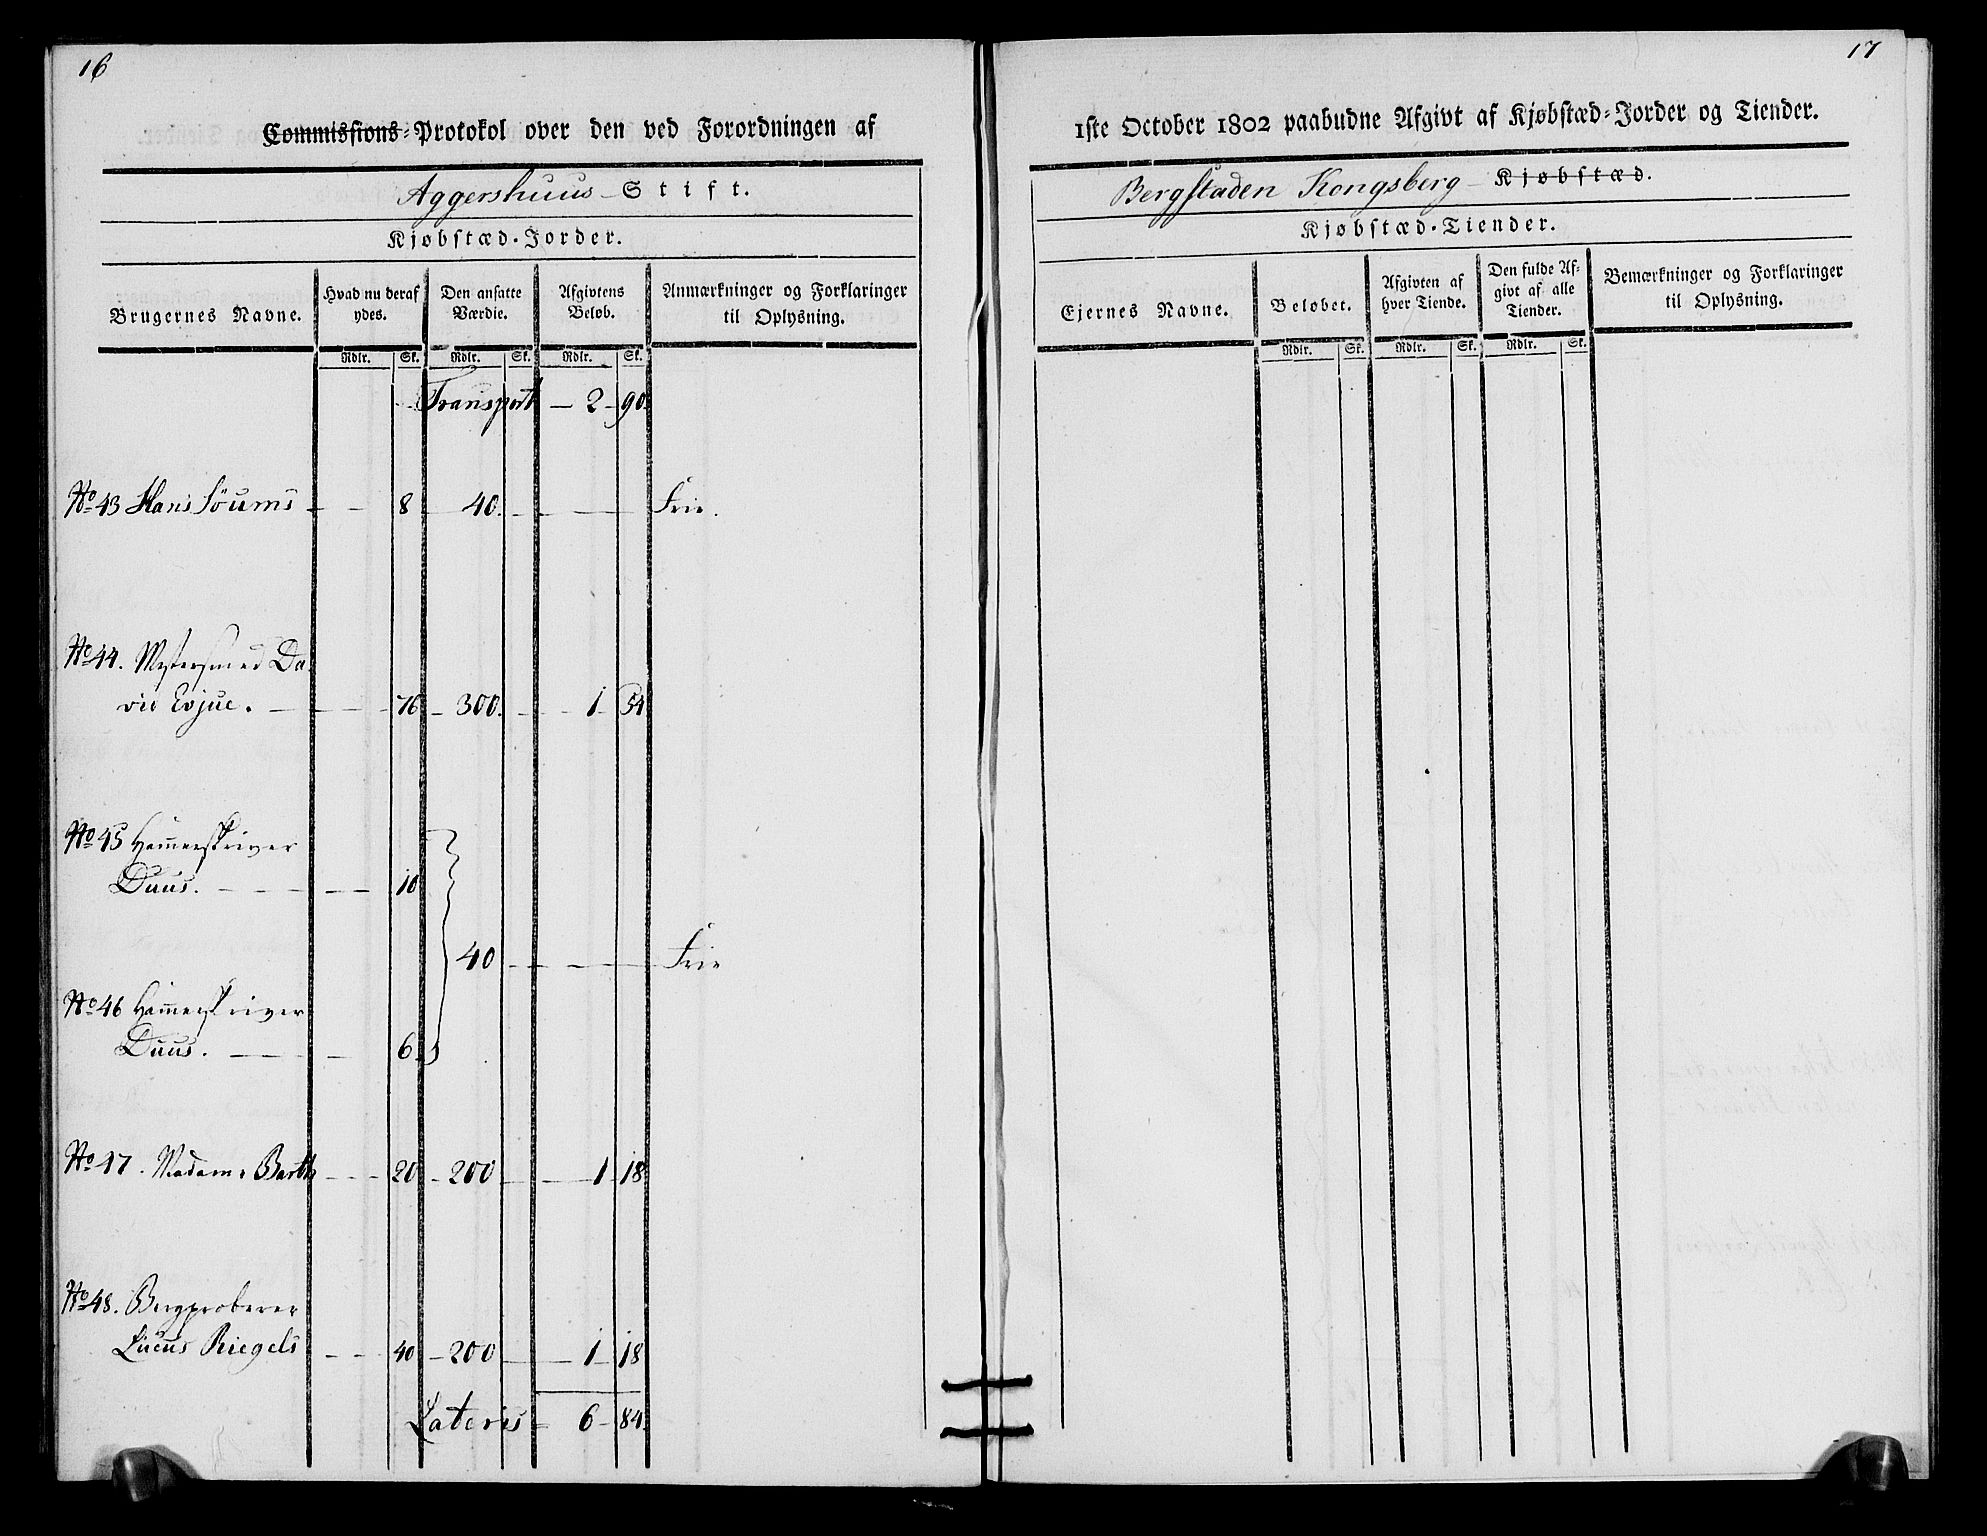 16
Commissions-Protokol over den ved Forordningen af
Aggershuus - Stift.
Kjøbstæd-Jorder.
Brugernes Navne. Hvad nu deraf ydes. Den ansatte Værdie. Afgivtens Beløb. Anmærkninger og Forklaringer til Oplysning.
Rdlr. Sk. Rdlr. Sk. Rdlr. Sk.
Transport - 2 - 90.
No 43 Hans Söums - - 8 - 40. - - - Frie.
No 44. Mestersmed Da
vid Evjue. - - - 76 - 300. - - 1 - 54
No 45 Ham̅erskriver
Duus. - - - 10
40 - - - Frie
No 46 Ham̅erskriver
Duus. - - - 6.
No 47. Madame Barth - - - 20 - 200 - - 1 - 18
No 48. Bergproberer
Lucus Riegels - - 40 - 200 - - 1 - 18
Lateris - 6 - 84.
17
1ste October 1802 paabudne Afgivt af Kjøbstæd-Jorder og Tiender.
Bergstaden Kongsberg - Kjøbstæd.
Kjøbstæd-Tiender.
Ejernes Navne. Beløbet. Afgivten af hver Tiende. Den fulde Afgivt af alle Tiender. Bemærkninger og Forklaringer til Oplysning.
Rdlr. Sk. Rdlr. Sk. Rdlr. Sk.